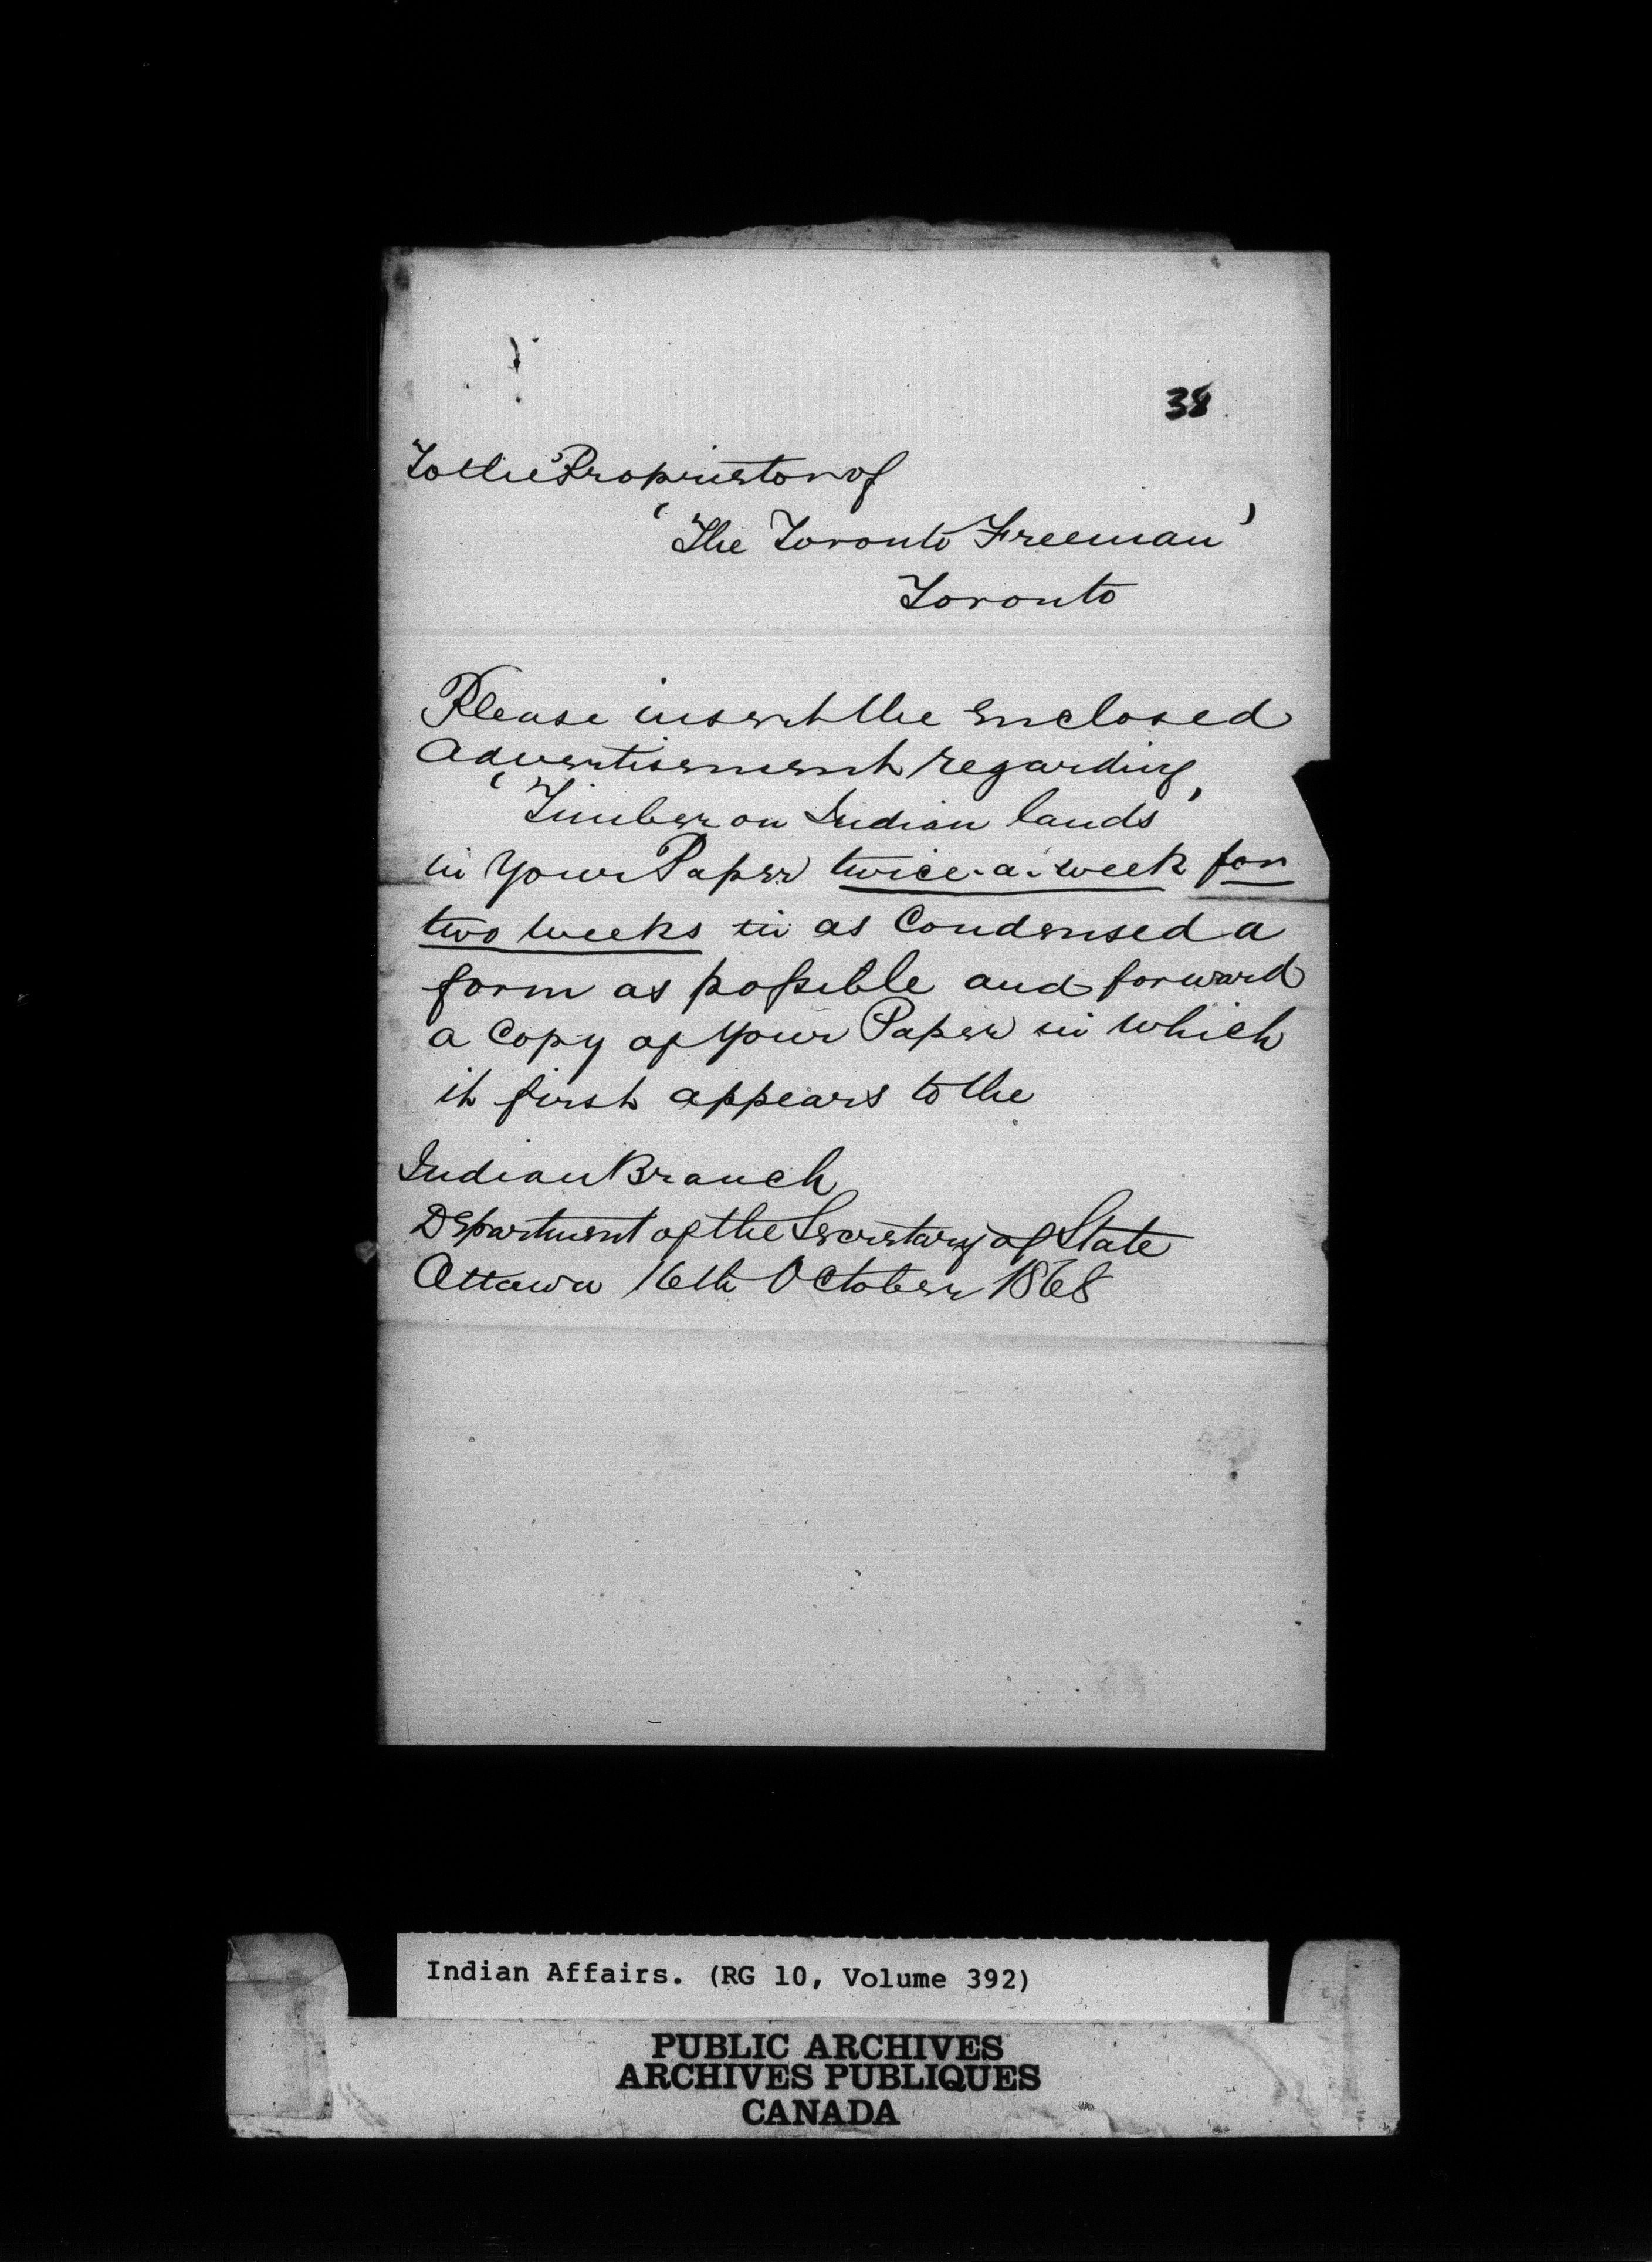 38
To the Proprietor of
'The Toronto Freeman'
Toronto
Please insert the enclosed
Advertisement regarding
'Timber on Indian lands'
in your Paper twice-a-week for
two weeks in as Condensed a
form as possible and forward
a Copy of your Paper in which
it first appears to the
Indian Branch
Department of the Secretary of State
Ottawa 16th October 1868
Indian Affairs. (RG 10, Volume 392)
PUBLIC ARCHIVES
ARCHIVES PUBLIQUES
CANADA